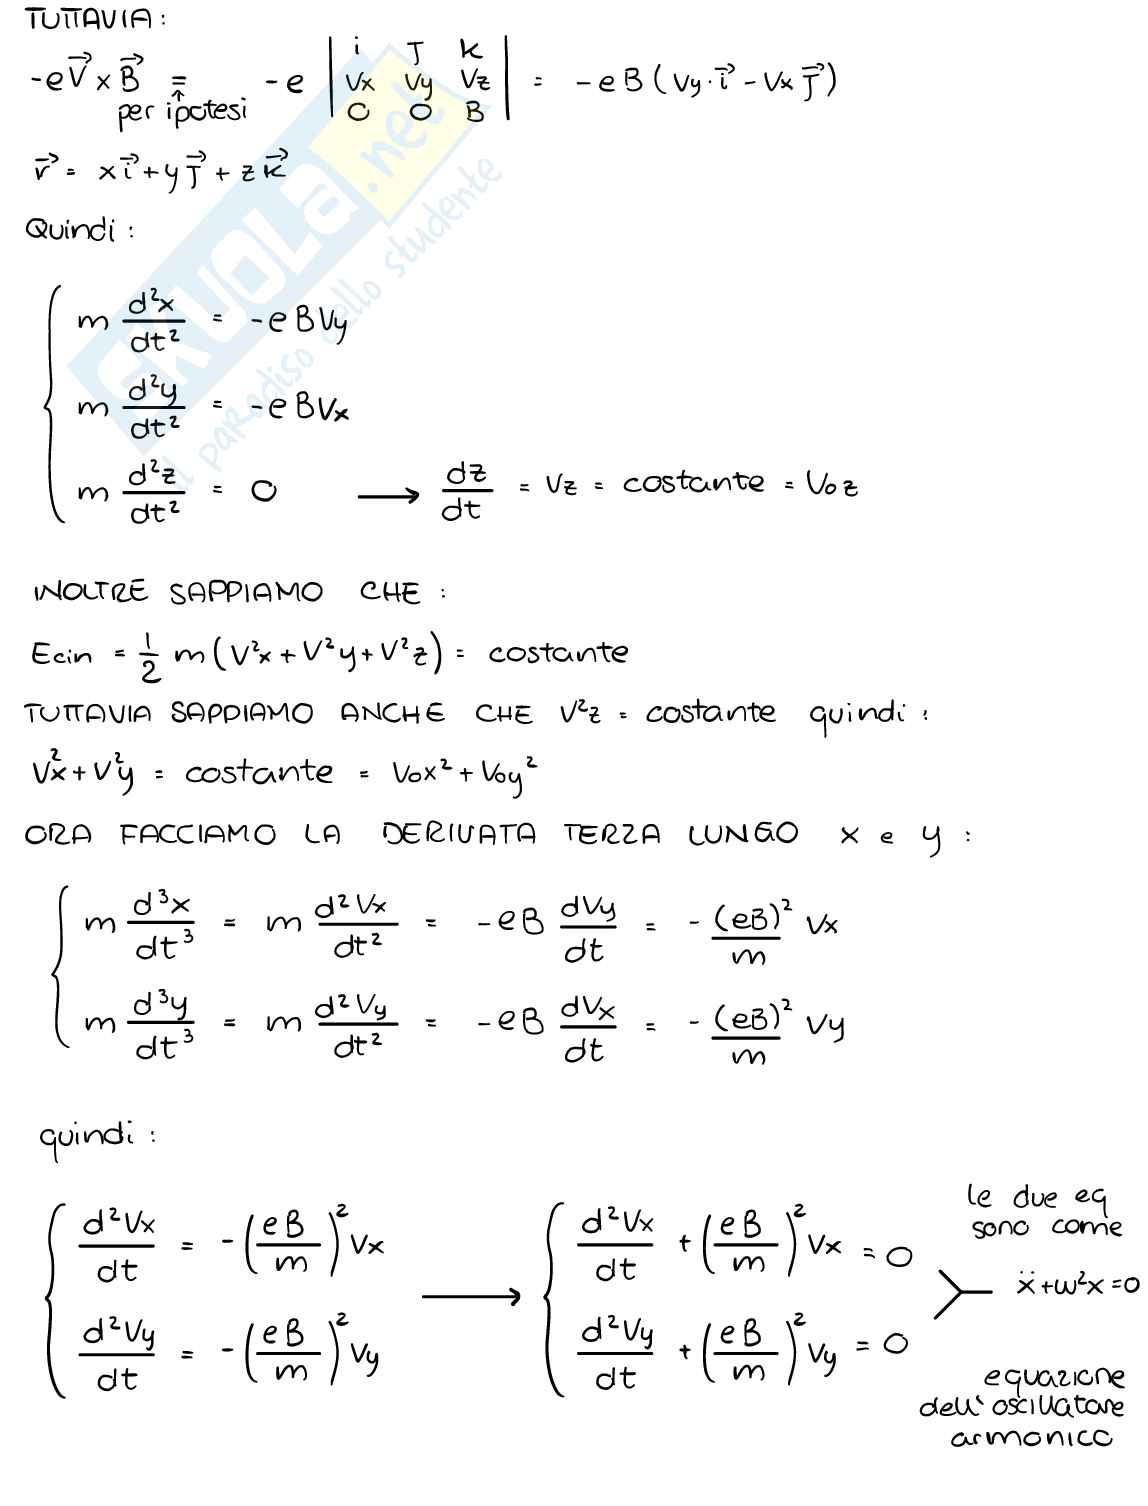 TUTTAVIA:
-e V⃗ × B⃗ = -e | i J K | = -eB (Vy·i⃗ - Vx J⃗)
| Vx Vy Vz |
| 0 0 B |
↑
per ipotesi
r⃗ = x i⃗ + y J⃗ + z K⃗
Quindi:
m d²x/dt² = -eBVy
m d²y/dt² = -eBVx
m d²z/dt² = 0 → dz/dt = Vz = costante = Voz
INOLTRE SAPPIAMO CHE:
Ecin = 1/2 m (V²x + V²y + V²z) = costante
TUTTAVIA SAPPIAMO ANCHE CHE V²z = costante quindi:
V²x + V²y = costante = Vox² + Voy²
ORA FACCIAMO LA DERIVATA TERZA LUNGO x e y:
m d³x/dt³ = m d²Vx/dt² = -eB dVy/dt = - (eB)²/m Vx
m d³y/dt³ = m d²Vy/dt² = -eB dVx/dt = - (eB)²/m Vy
quindi:
d²Vx/dt = -(eB/m)² Vx → d²Vx/dt + (eB/m)² Vx = 0
d²Vy/dt = -(eB/m)² Vy d²Vy/dt + (eB/m)² Vy = 0
le due eq
sono come
ẍ + ω²x = 0
equazione
dell'oscillatore
armonico
SKUOLA.net
il paradiso dello studente